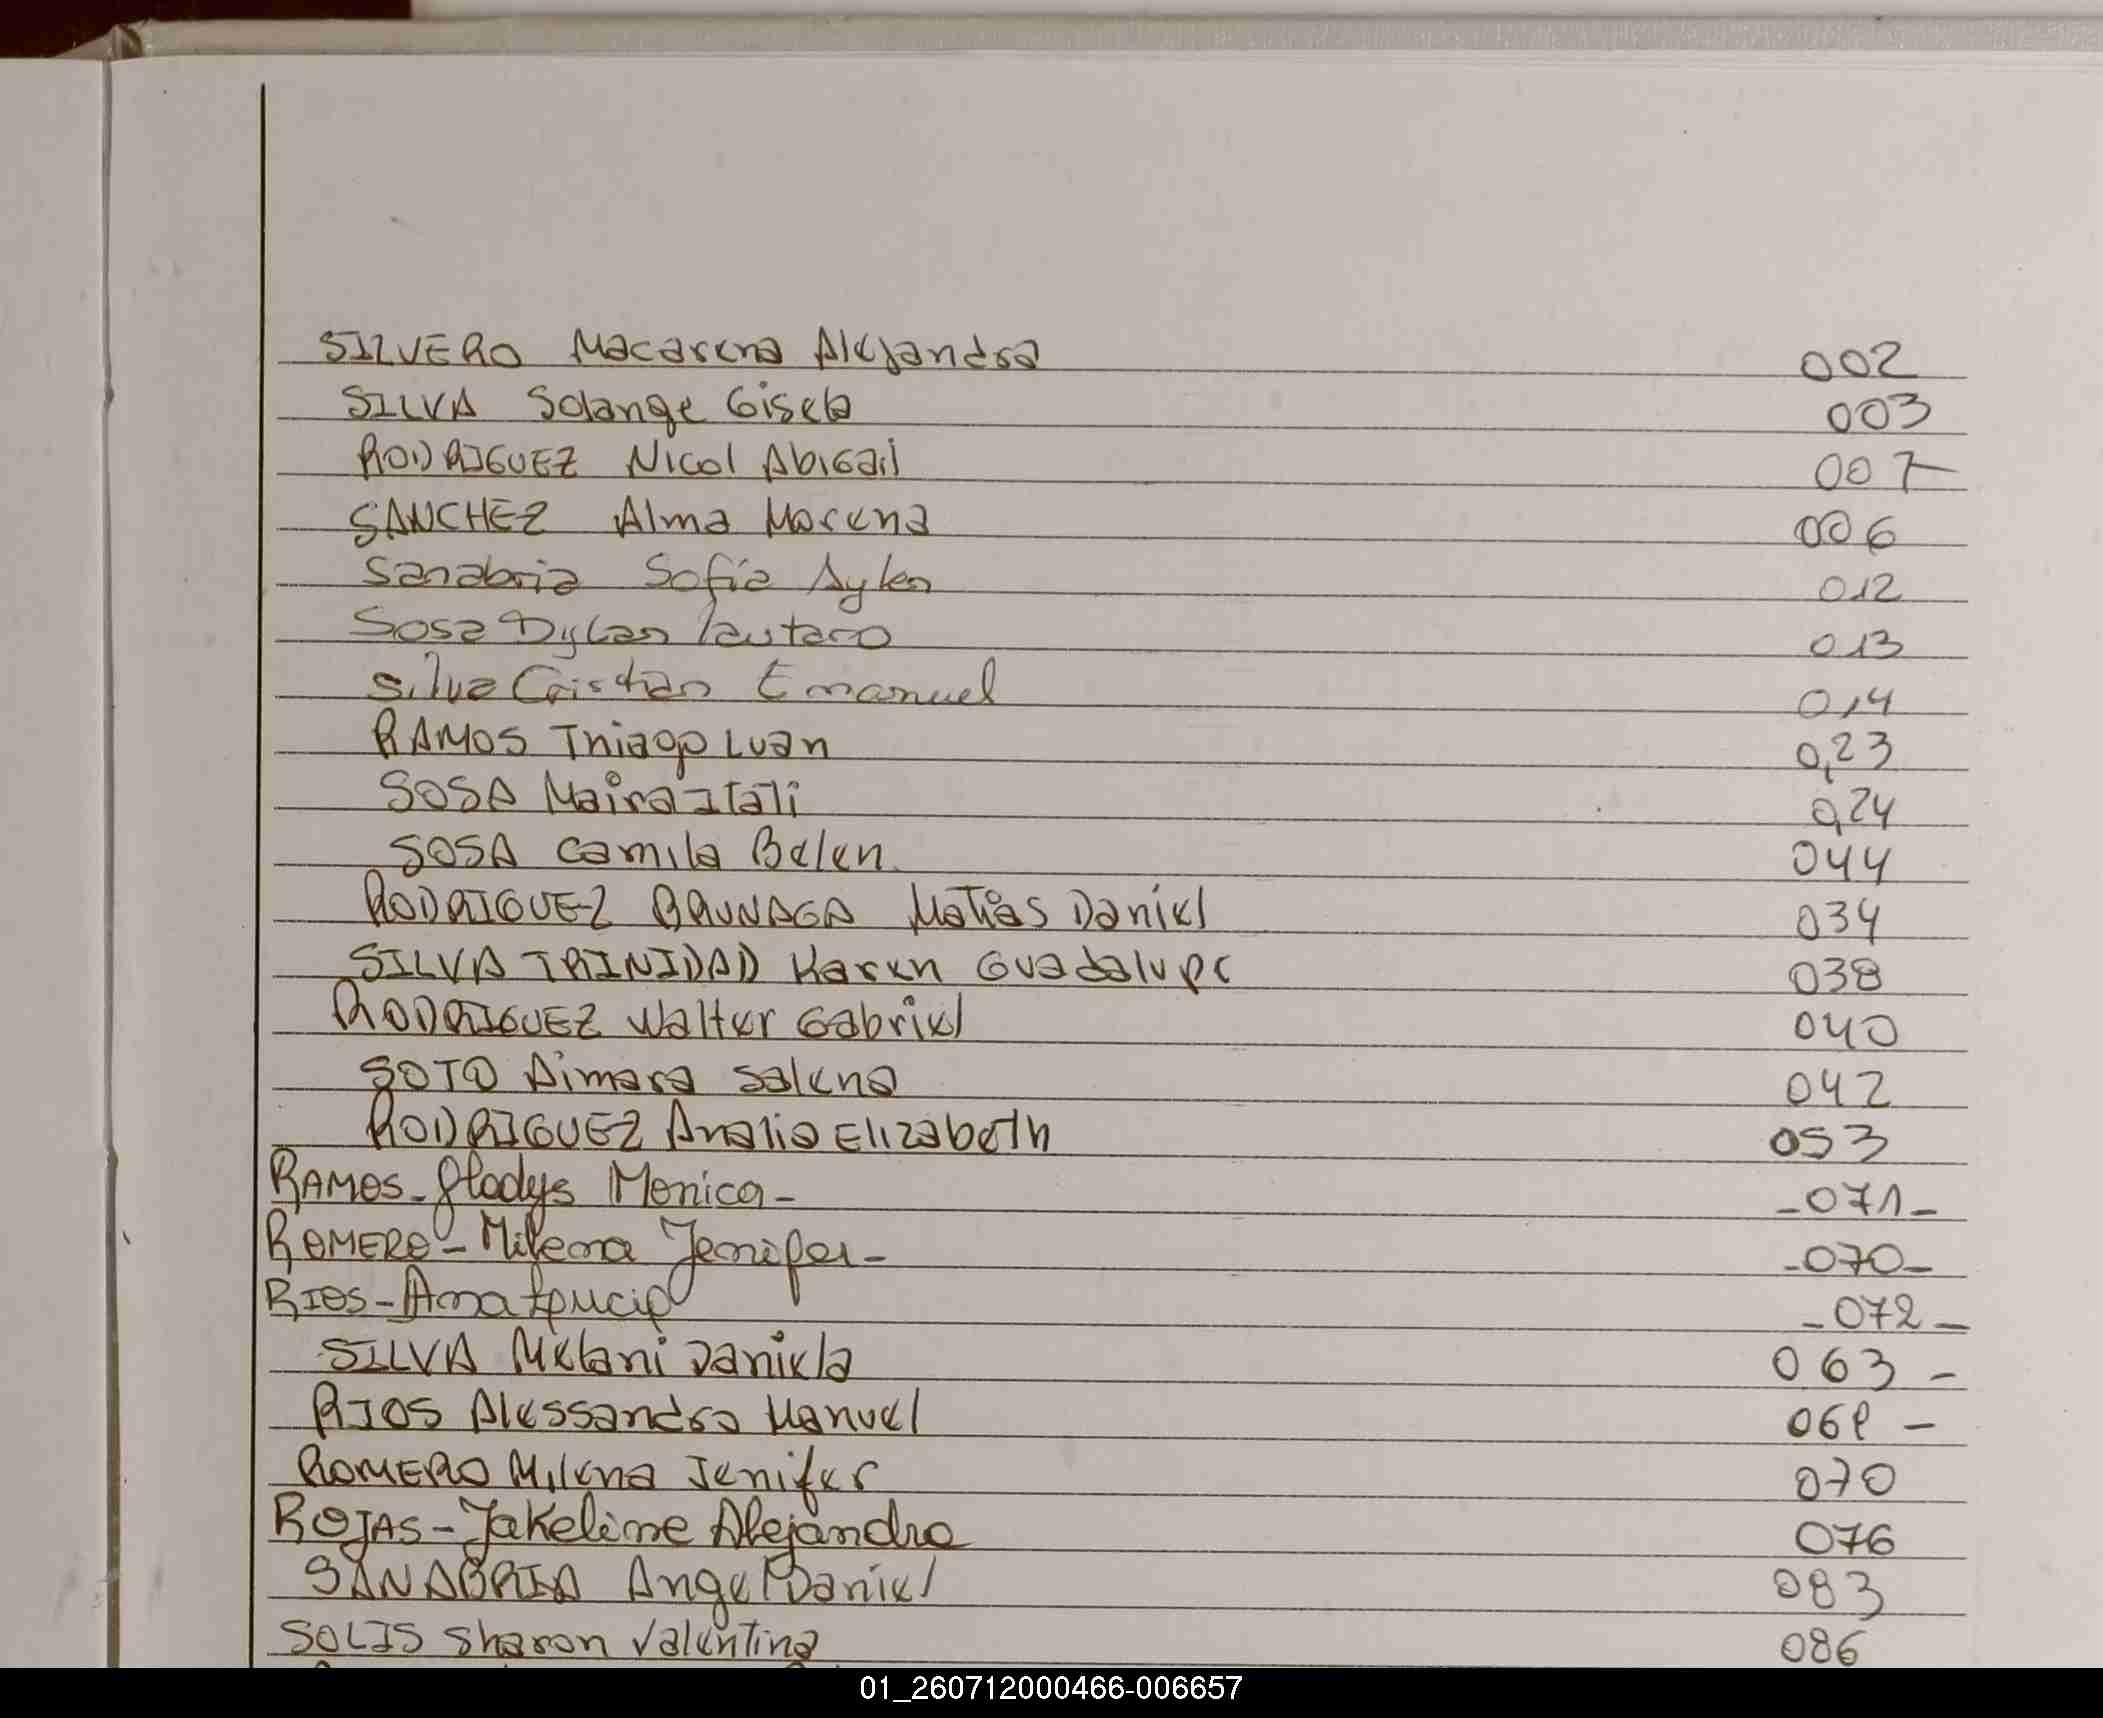 SILVERO Macarena Alejandra 002
SILVA Solange Gisela 003
RODRIGUEZ Nicol Abigail 007
SANCHEZ Alma Morena 006
Sanabria Sofia Aylen 012
Sosa Dylan lautaro 013
Silva Cristian Emanuel 014
RAMOS Thiago Luan 0,23
SOSA Maira Itali 0,24
SOSA Camila Belen 044
RODRIGUEZ BRUNAGA Matias Daniel 034
SILVA TRINIDAD Karen Guadalupe 038
RODRIGUEZ Walter Gabriel 040
SOTO Aimara Salena 042
RODRIGUEZ Analia Elizabeth 053
RAMOS - Gladys Monica - -071-
ROMERO - Milena Jenifer - -070-
RIOS - Ana -072-
SILVA Melani Daniela 063 -
RIOS Alessandro Manuel -
ROMERO Milena Jenifer 070
ROJAS - Jakeline Alejandra 076
SANABRIA Angel Daniel 083
SOLIS Sharon Valentina 086
01_260712000466-006657